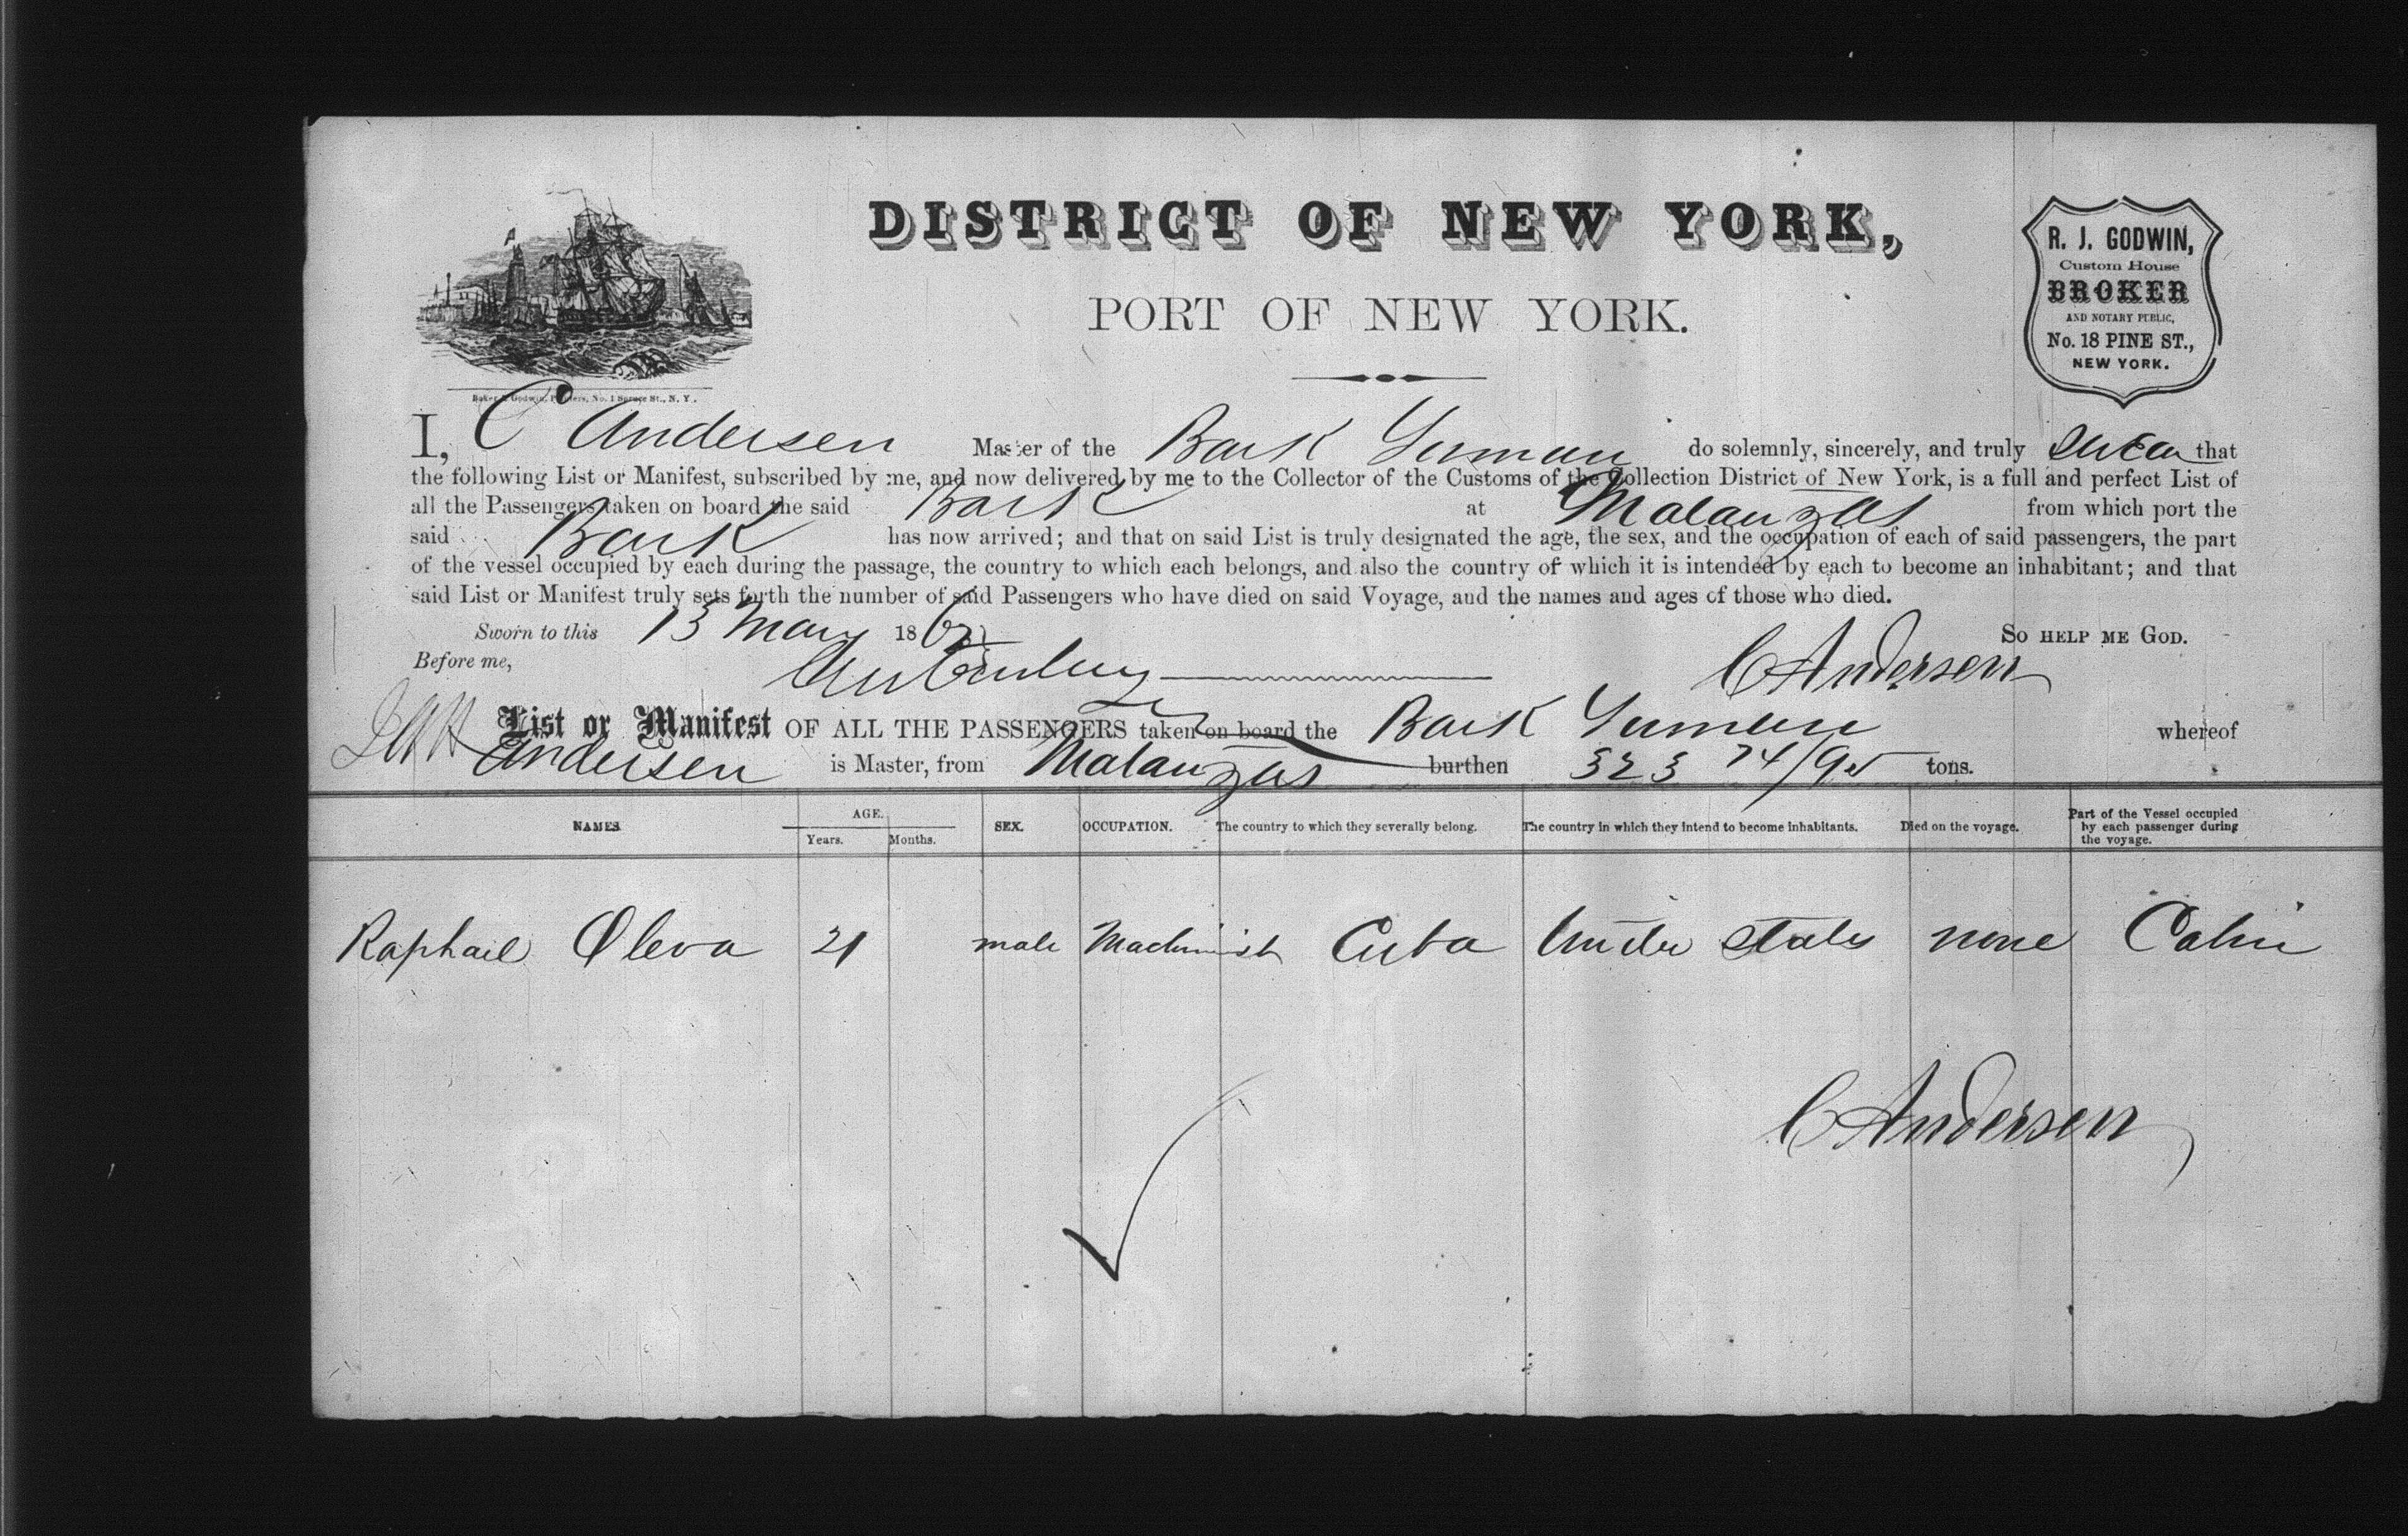 DISTRICT OF NEW YORK,
PORT OF NEW YORK.
R. J. GODWIN,
Custom House
BROKER
AND NOTARY PUBLIC,
No. 18 PINE ST.,
NEW YORK.
Baker & Godwin, Printers, No. 1 Spruce St., N. Y.
I, C Andersen Master of the Bark do solemnly, sincerely, and truly swear that
the following List or Manifest, subscribed by me, and now delivered by me to the Collector of the Customs of the Collection District of New York, is a full and perfect List of
all the Passengers taken on board the said Bark at Matanzas from which port the
said Bark has now arrived; and that on said List is truly designated the age, the sex, and the occupation of each of said passengers, the part
of the vessel occupied by each during the passage, the country to which each belongs, and also the country of which it is intended by each to become an inhabitant; and that
said List or Manifest truly sets forth the number of said Passengers who have died on said Voyage, and the names and ages of those who died.
Sworn to this 13 May 186 SO HELP ME GOD.
Before me, C Andersen
List or Manifest OF ALL THE PASSENGERS taken on board the Bark whereof
Andersen is Master, from Matanzas burthen 323 74/95 tons.
NAMES AGE. Years. Months. SEX. OCCUPATION. The country to which they severally belong. The country in which they intend to become inhabitants. Died on the voyage. Part of the Vessel occupied by each passenger during the voyage.
Raphail Oleva 21 male Machinist Cuba United States none Cabin
C Andersen